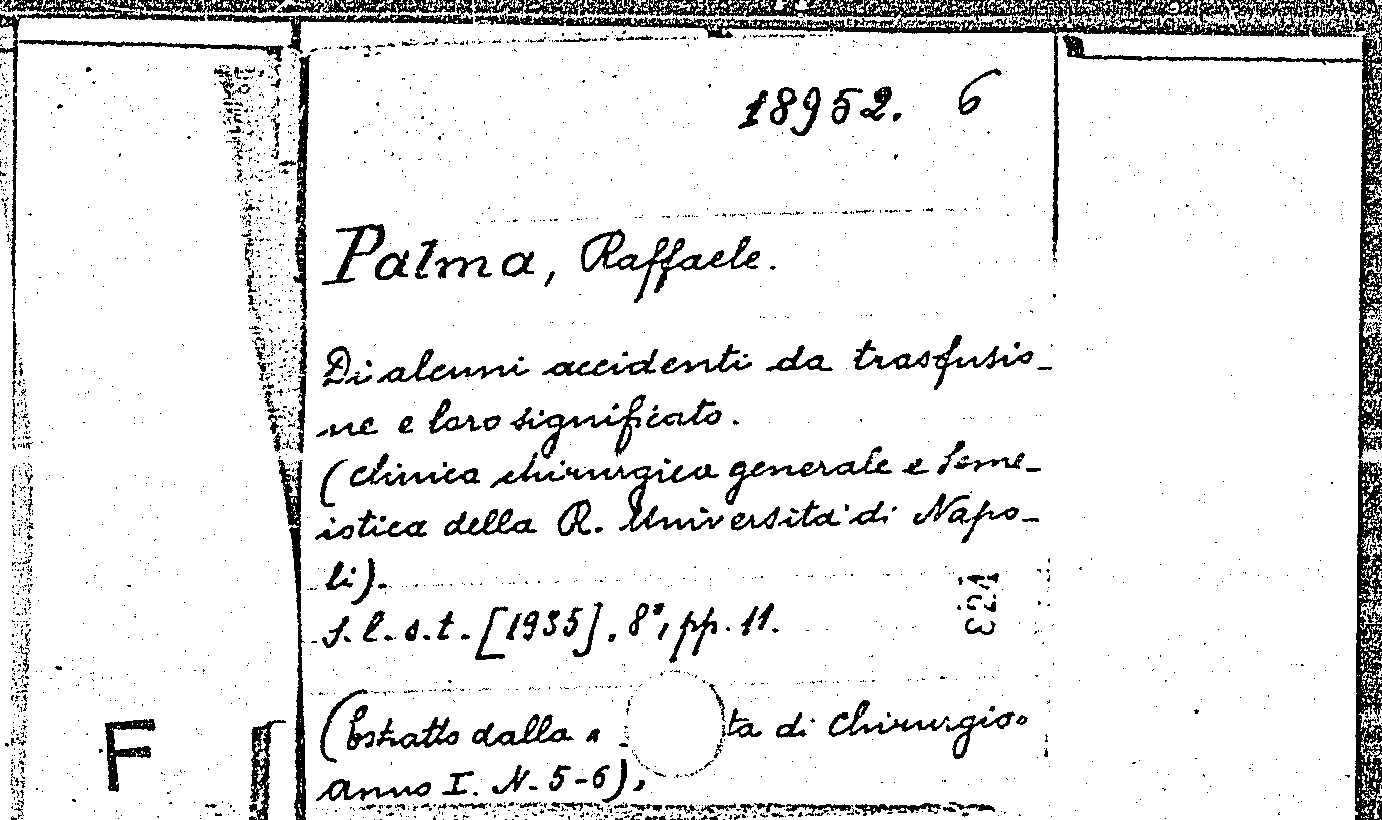 18952. 6
Palma, Raffaele.
Di alcuni accidenti da trasfusio-
ne e loro significato.
(Clinica chirurgica generale e Seme-
iotica della R. Università di Napo-
li).
S. l. s. t. [1935]. 8°, pp. 11.
(Estratto dalla « ta di Chirurgia.
Anno I. N. 5-6).
F